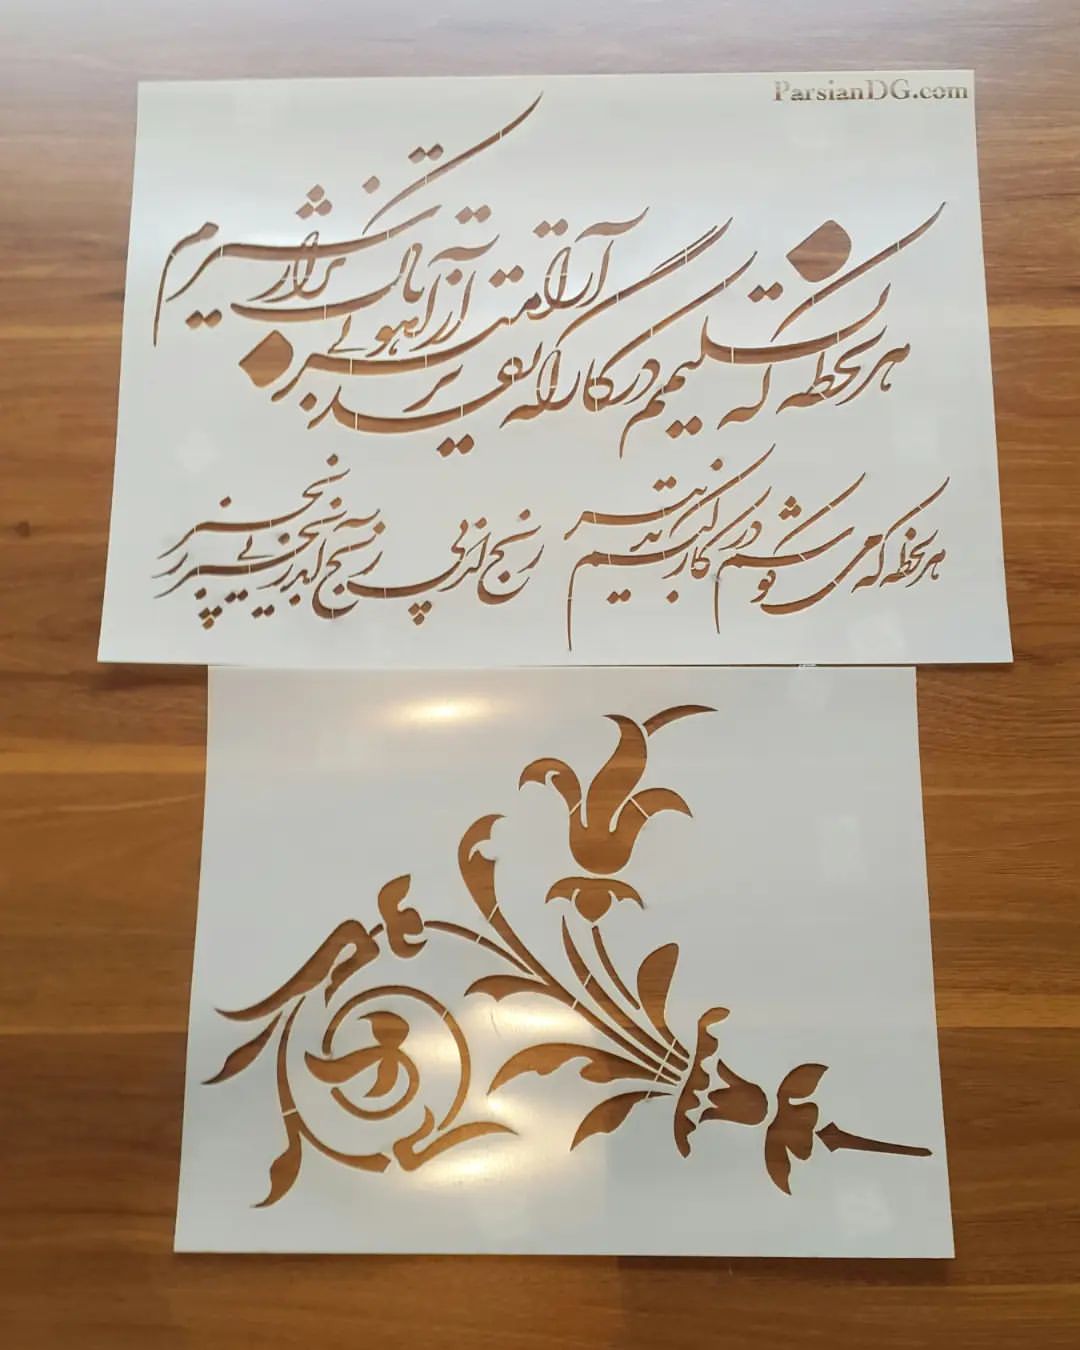 ParsianDG.com
هر لحظه که تسلیمم در کارگه تقدیر
آرامتر از آهو بی باک تر از شیرم
هر لحظه که می کوشم در کار کنم تدبیر
رنج از پی رنج آید زنجیر پی زنجیر